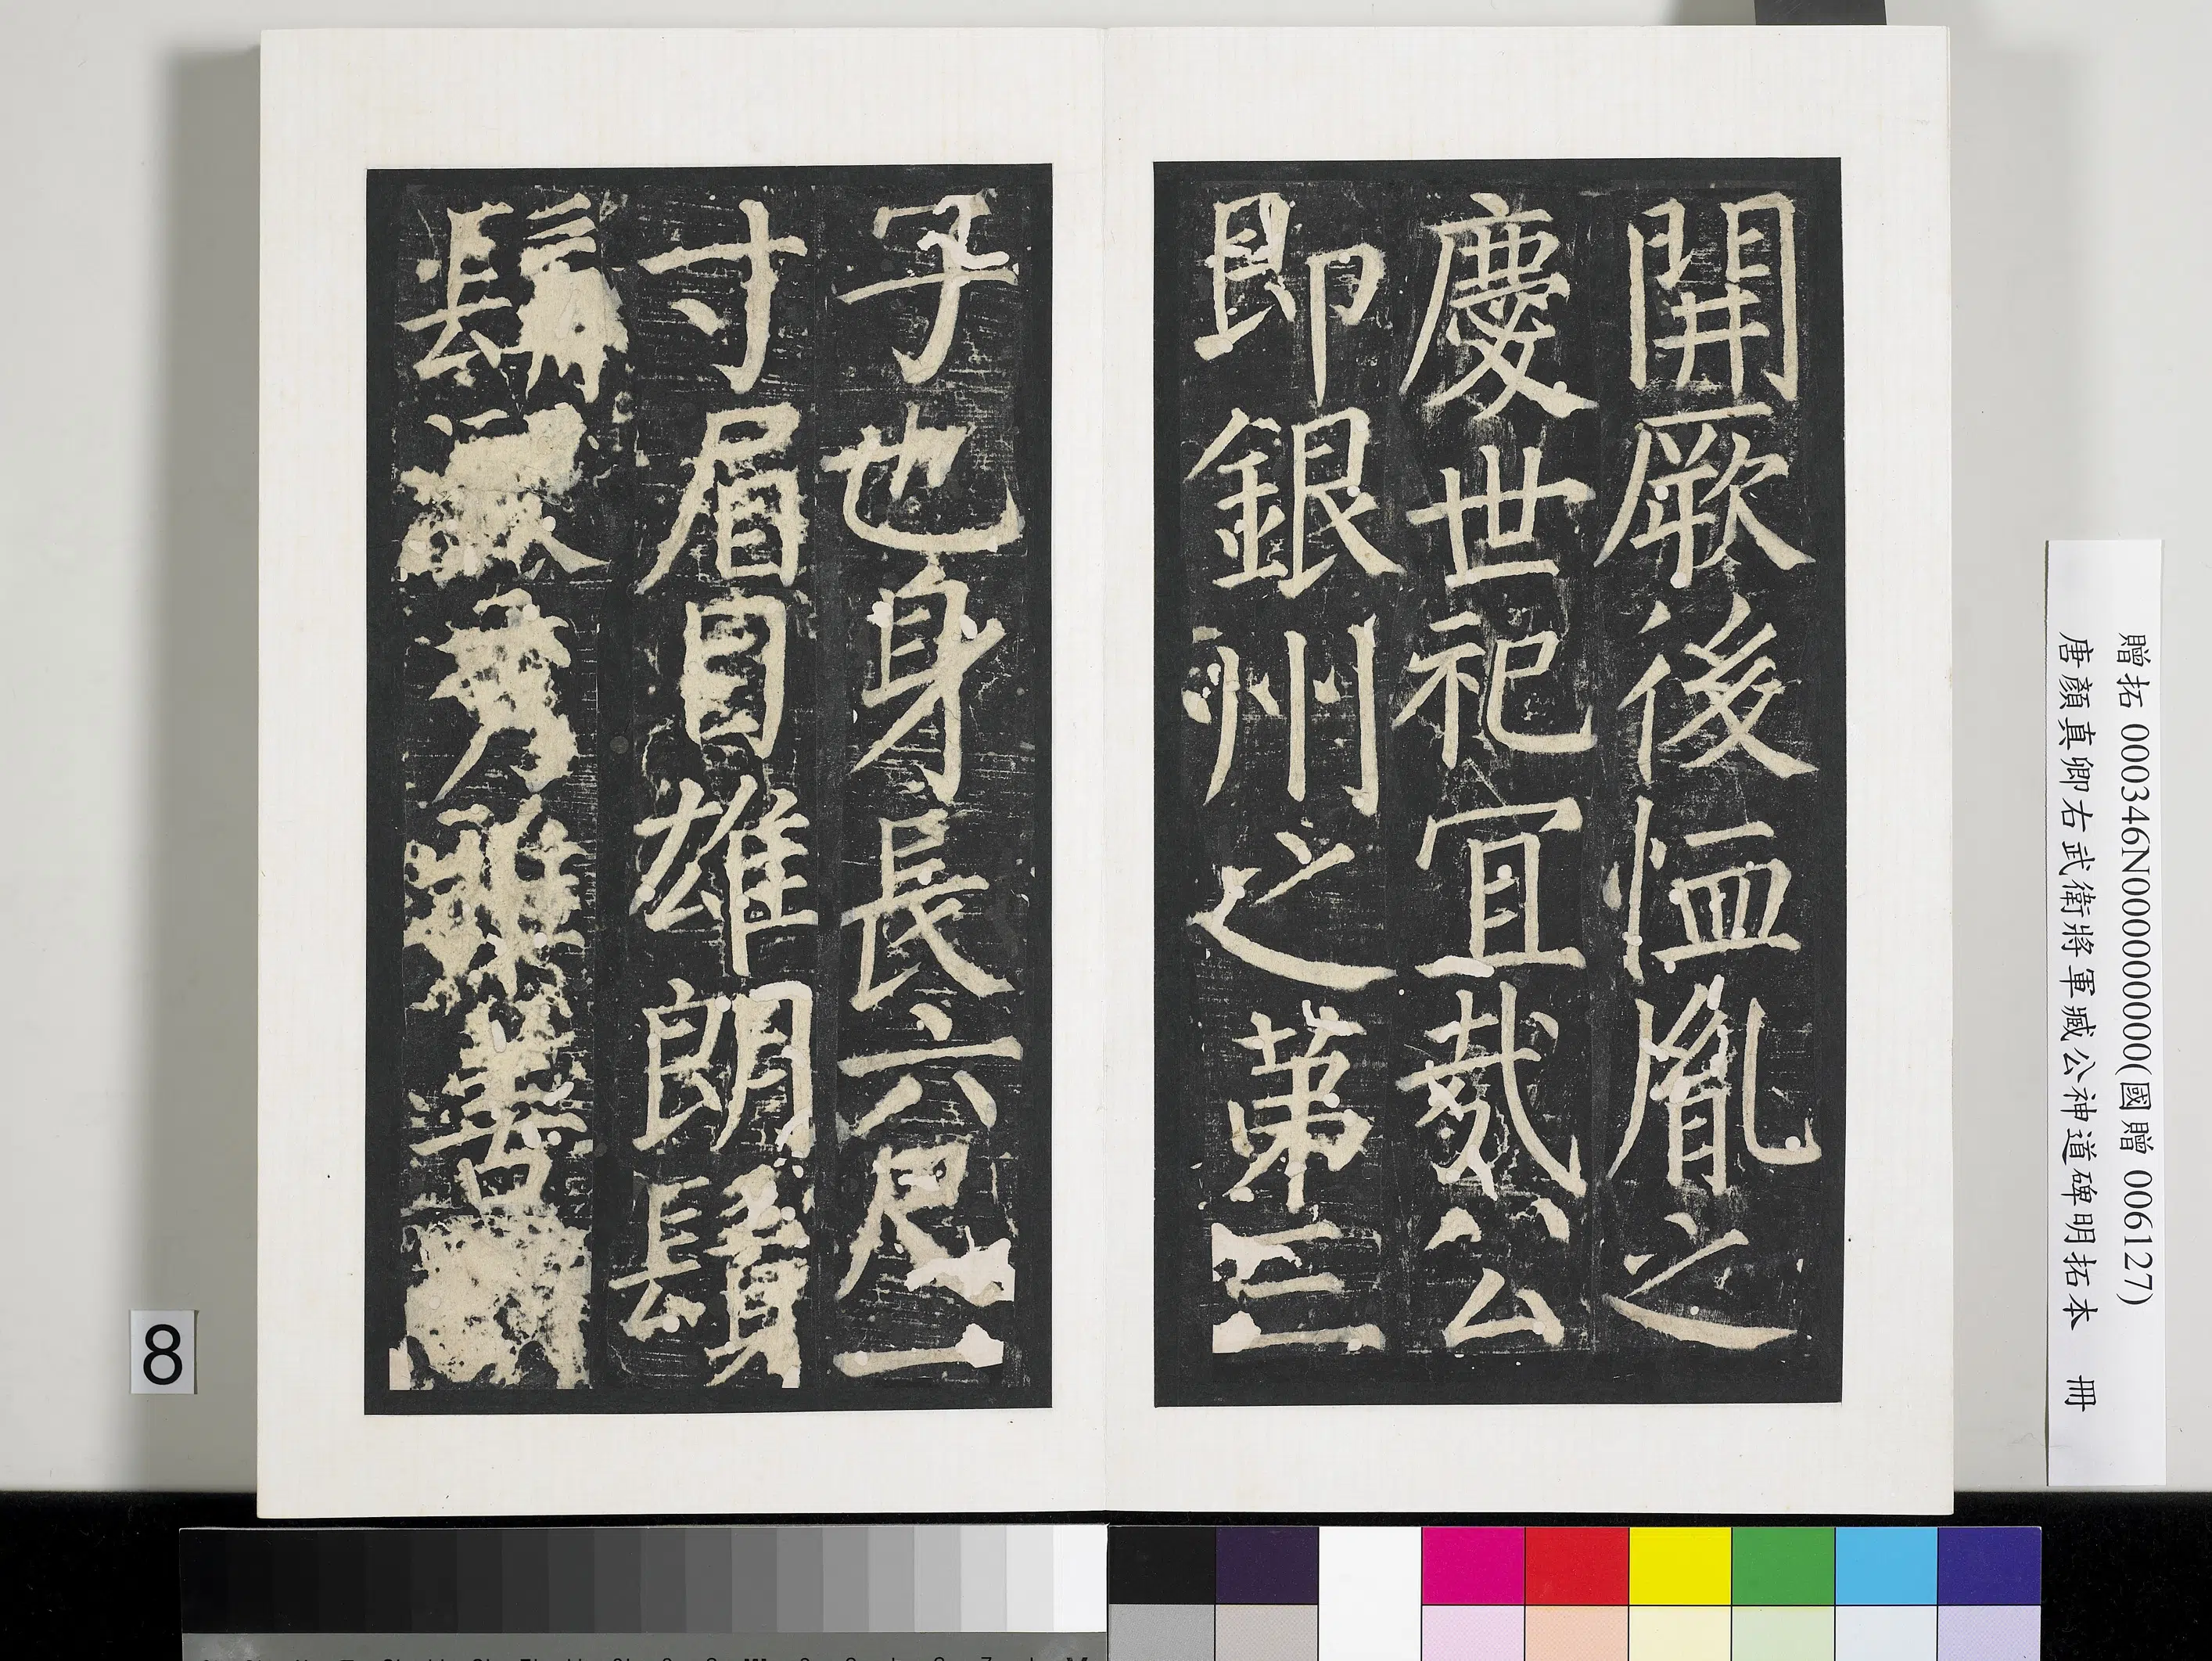 開厥後恤胤之
慶世祀宜哉公
即銀州之第三
子也身長六尺一
寸眉目雄朗鬚
髯秀雅善
贈拓 000346N000000000(國贈 006127)
唐顏真卿右武衛將軍臧公神道碑明拓本 冊
8